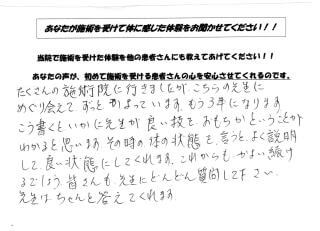 あなたが施術を受けて体に感じた体験をお聞かせてください！！
当院で施術を受けた体験を他の患者さんにも教えてあげてください！！
あなたの声が、初めて施術を受ける患者さんの心を安心させてくれるのです。
たくさんの施術院に行きましたが、こちらの先生に
めぐり会えて、ずっとかよっています。もう3年になります。
こう書くといかに先生が良い技を、おもちかということが
わかると思います。その時の体の状態を、言うと、よく説明
して、良い状態にしてくれます。これからもかよい続け
るでしょう。皆さんも、先生にどんどん質問して下さい。
先生はちゃんと答えてくれます。